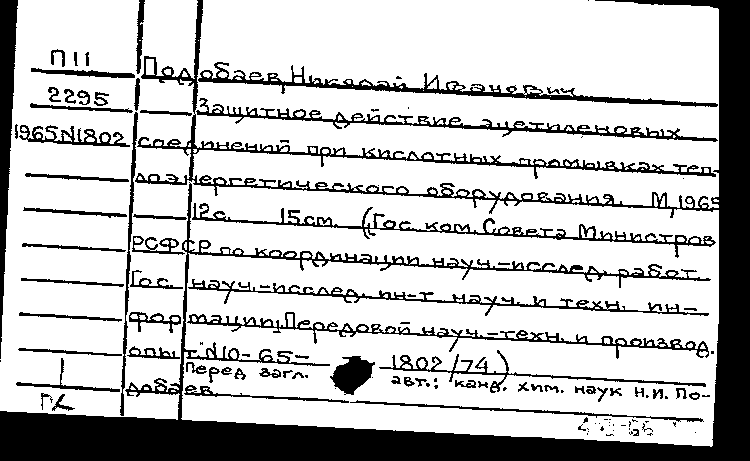 П11 Подобаев, Николай Иванович.
2295 Защитное действие ацетиленовых
1965N1802 соединений при кислотных промывках теп-
лоэнергетического оборудования. М, 1965
12с. 15см. (Гос. ком. Совета Министров
РСФСР по координации науч.-исслед. работ.
Гос. науч.-исслед. ин-т науч. и техн. ин-
формации. Передовой науч.-техн. и производ.
опыт. N10-65- 1802/74.)
Перед загл. авт.: канд. хим. наук Н.И. По-
добаев.